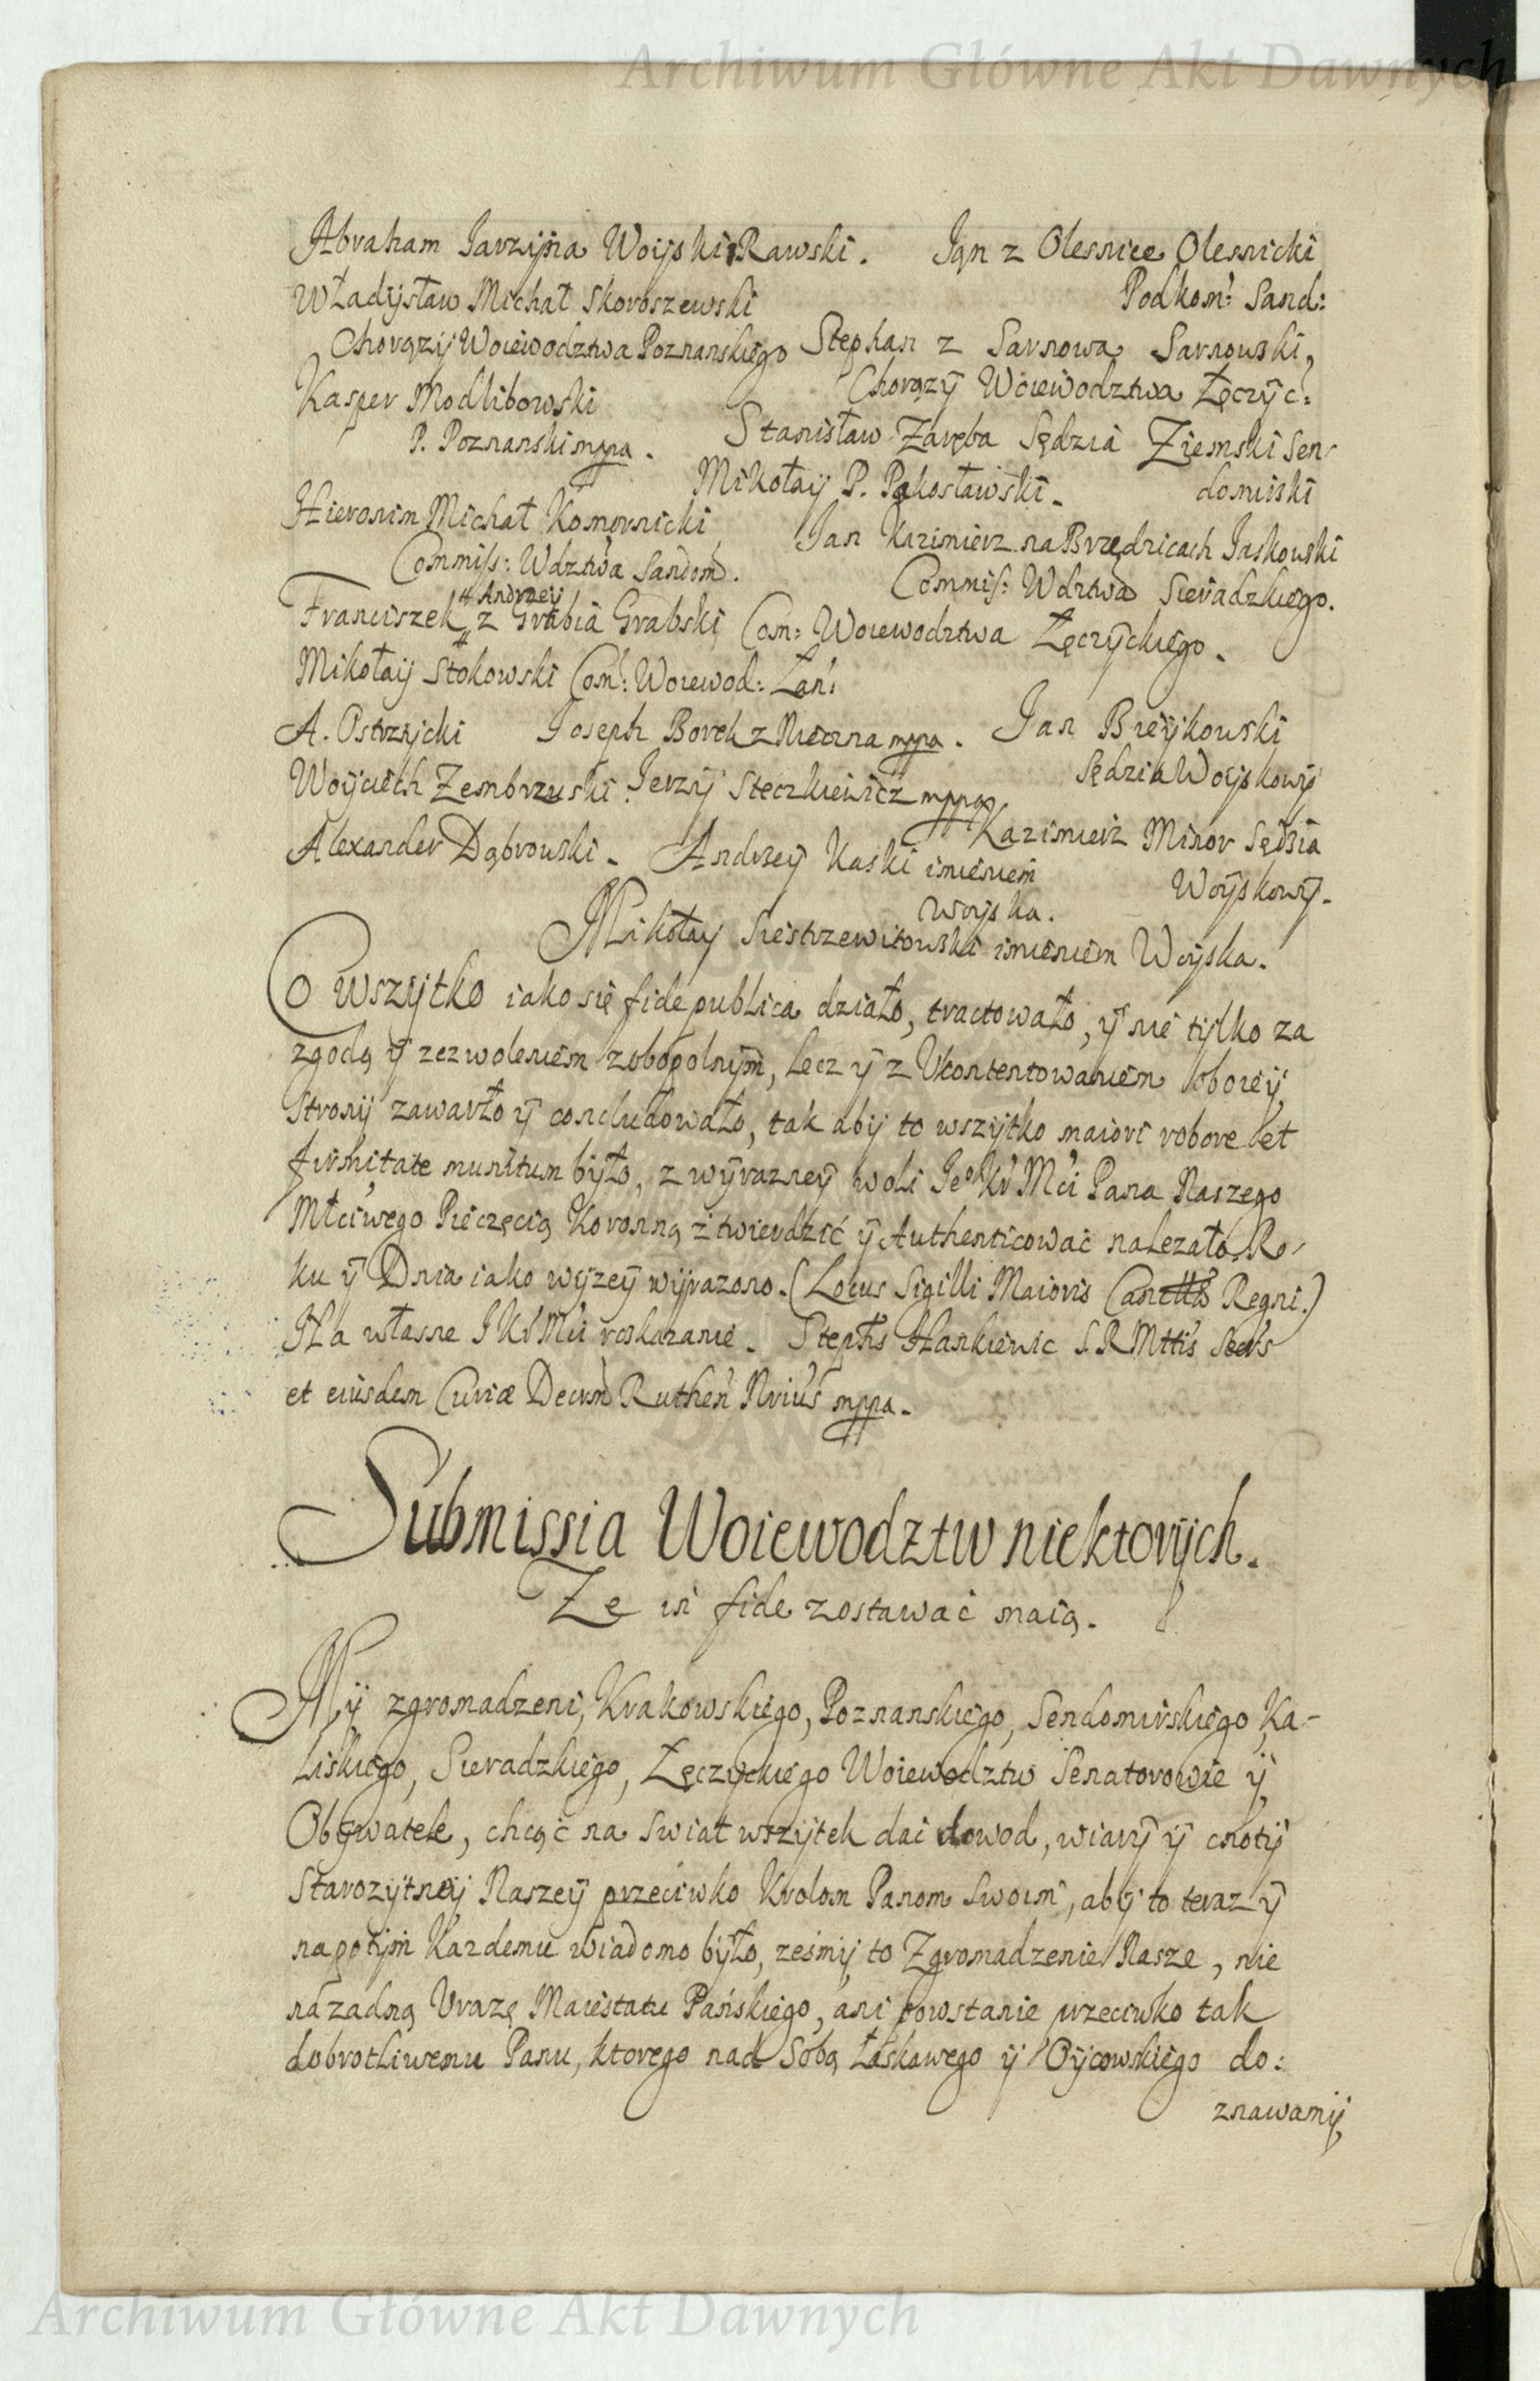 Archiwum Główne Akt Dawnych
Abraham Jarzyna Woyski Rawski. Jan z Olesnice Olesnicki
Władysław Michał Skoroszewski Podkom: Sand:
Chorązy Woiewodztwa Poznanskiego Stephan z Sarnowa Sarnowski,
Kasper Modlibowski Chorązy Woiewodztwa Łęczyc:
P. Poznanski mppa. Stanisław Zaręba Sędzia Ziemski Sen-
Mikołay P. Pąkosławski. domirski
Hieronim Michał Komornicki Jan Kazimierz na Brzędzicach Jaskowski
Commiss: Wdztwa Sandom. Commis: Wdztwa Sieradzkiego.
Andrzey
Franciszek z Grabia Grabski Com: Woiewodztwa Łęczyckiego.
Mikołaiy Stokowski Com: Woiewod: Łań:
A. Ostrzycki Joseph Borek z mppa. Jan Bieykowski
Woyciech Zembrzuski. Jerzy Steczkiewicz mppa Sędzia Woyskowy
Alexander Dąbrowski. Andrzey Kaski imieniem Kazimierz Minor Sędzia
woyska. Woyskowy.
Mikołay Siestrzewitowski imieniem Woyska.
Co wszytko iako się fide publica działo, tractowało, y nie tylko za
zgodą y zezwoleniem zobopolnym, lecz y z Ukontentowaniem oboiey
Strony zawarło y concludowało, tak aby to wszytko maiori robore et
firmitate munitum było, z wyrazney woli Je° Kr Mci Pana Naszego
Młciwego Pieczęcią Koronną ztwierdzić y Authenticować nalezało. Ro-
ku y Dnia iako wyzey wyrazono. (Locus Sigilli Maioris Canclls Regni.)
Na własne J Kr Mci roskazanie. Stephs Hankiewic S. R Mttis Secrs
et eiusdem Curiæ Decrm Ruthen Nrius mppa.
Submissia Woiewodztw niektorych.
Ze in fide zostawać maią.
My zgromadzeni, Krakowskiego, Poznanskiego, Sendomirskiego, Ka-
liskiego, Sieradzkiego, Łęczyckiego Woiewodztw Senatorowie y
Obywatele, chcąc na swiat wszytek dać dowod, wiary y cnoty
Starozytney Naszey przeciwko Krolom Panom swoim, aby to teraz y
napotym Kazdemu wiadomo było, ześmy to Zgromadzenie Nasze, nie
na zadną Urazę Maiestatu Pańskiego, áni powstanie przeciwko tak
dobrotliwemu Panu, ktorego nad Sobą Łaskawego y Oycowskiego do:
znawamy
Archiwum Główne Akt Dawnych